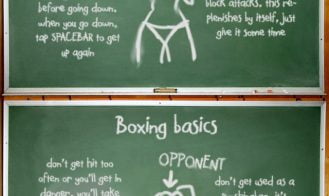 before going down,
when you go down,
tap SPACEBAR to get
up again
block attacks, this re-
plenishes by itself, just
give it some time
Boxing basics
don't get hit too
often or you'll get in
danger, you'll take
OPPONENT
don't get used as a